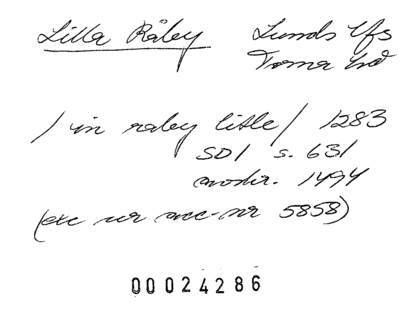 Lilla Råby Lunds lfs
Torna hd
/ in raby litle / 1283
SD1 s. 631
avskr. 1494
(exc ur acc-nr 5858)
00024286